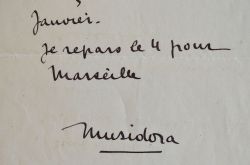 Janvier.
Je repars le 4 pour
Marseille
Musidora